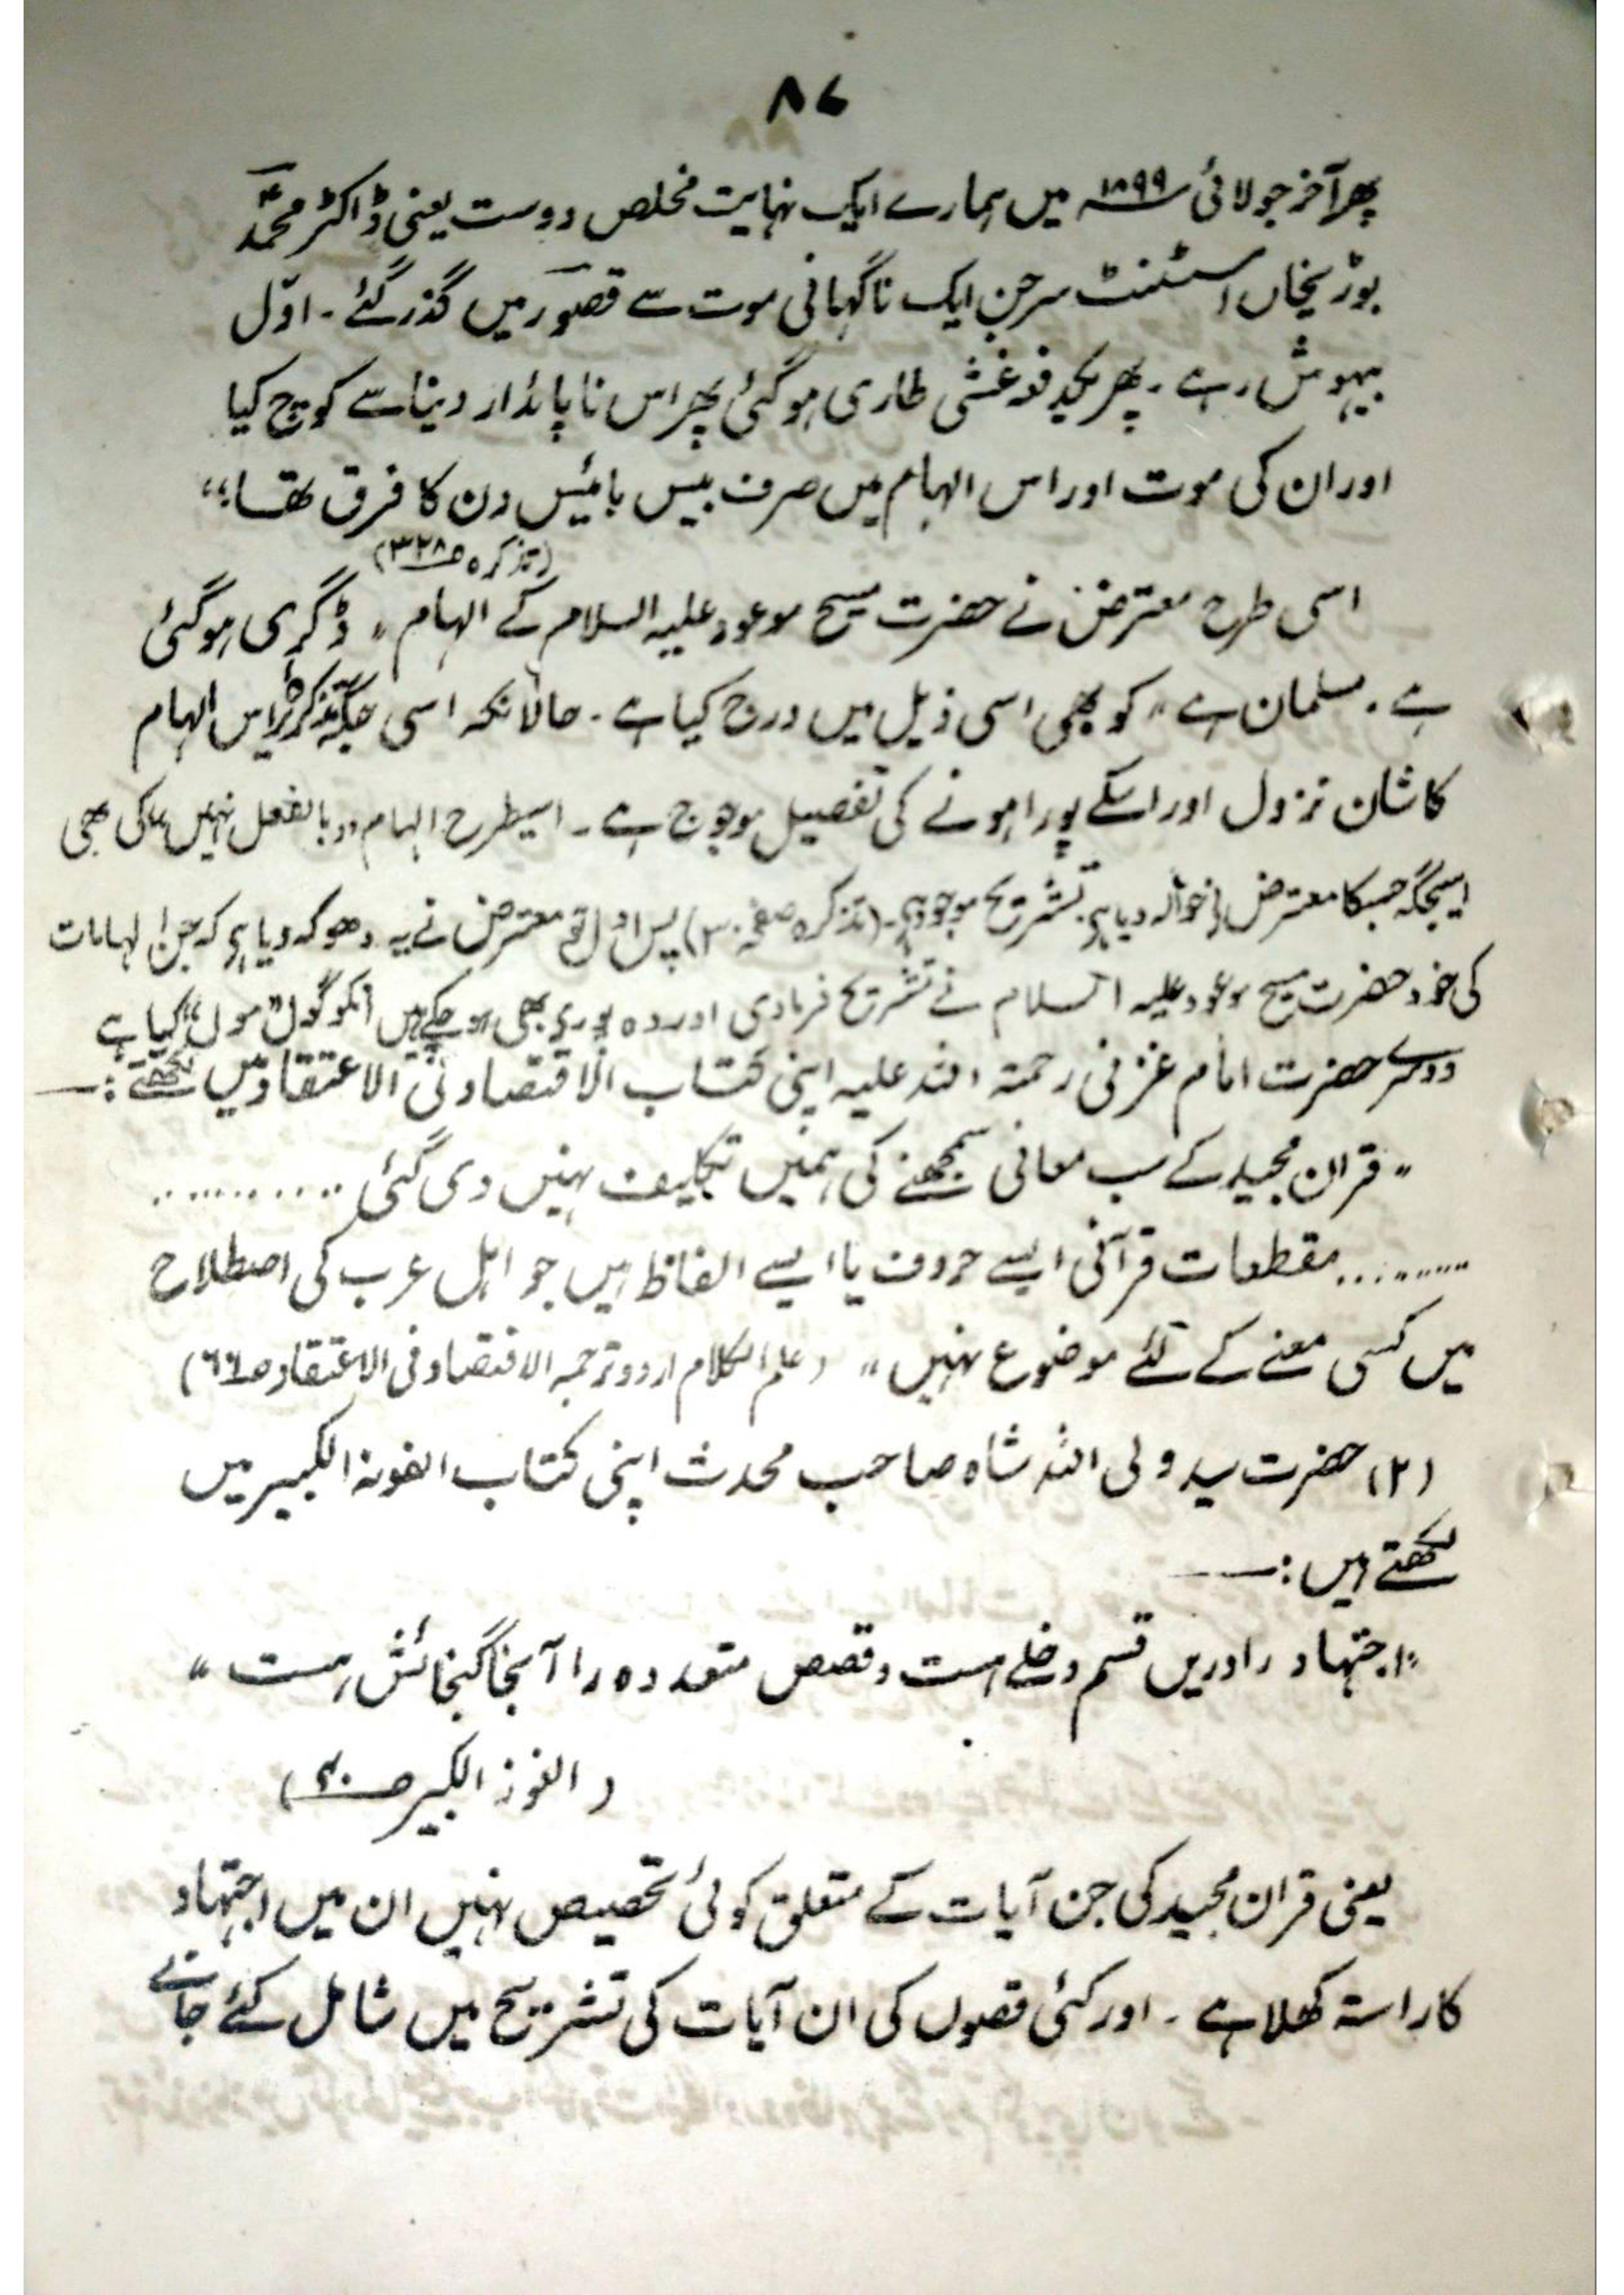 ۸۷
پھر آخر جولائی ۱۸۹۹ء میں ہمارے ایک نہایت مخلص دوست یعنی ڈاکٹر محمد
بوڑیخاں اسسٹنٹ سرجن ایک ناگہانی موت سے قصور میں گذر گئے ۔ اوّل
بیہوش رہے ۔ پھر یکدفعہ غشی طاری ہو گئی پھر اس ناپائدار دینا سے کوچ کیا
اور ان کی موت اور اس الہام میں صرف بیس بائیس دن کا فرق تھا؛"
(تذکرہ ص۳۲۸)
اسی طرح معترض نے حضرت مسیح موعود علیہ السلام کے الہام " ڈگری ہو گئی
ہے . مسلمان ہے " کو بھی اسی ذیل میں درج کیا ہے ۔ حالانکہ اسی جگہ تذکرہ پر اس الہام
کا شان نزول اور اسکے پورا ہونے کی تفصیل موجود ہے ۔ اسیطرح الہام "بالفعل نہیں" کی بھی
اسیجگہ جسکا معترض نے حوالہ دیا ہے تشریح موجود ہے ۔ (تذکرہ صفحہ ) پس اول تو معترض نے یہ دھوکہ دیا ہے کہ جن الہامات
کی خود حضرت مسیح موعود علیہ السلام نے تشریح فرما دی اور وہ پورے بھی ہو چکے ہیں انکو گول "مول" کیا ہے
دوسرے حضرت امام غزنی رحمتہ اللہ علیہ اپنی کتاب الاقتصاد فی الاعتقاد میں لکھتے :ـــ
" قران مجید کے سب معانی سمجھنے کی ہمیں تکلیف نہیں دی گئی ...........
......... مقطعات قرآنی ایسے حروف یا ایسے الفاظ ہیں جو اہل عرب کی اصطلاح
میں کسی معنے کے لئے موضوع نہیں " (علم الکلام اردو ترجمہ الاقتصاد فی الاعتقاد ص۶۶)
(۲) حضرت سید ولی اللہ شاہ صاحب محدث اپنی کتاب الفوز الکبیر میں
لکھتے ہیں :ـــ
"اجتہاد را دریں قسم دخلے ہست و قصص متعددہ را آنجا گنجائش ہست "
( الفوز الکبیر ص۴۰)
یعنی قران مجید کی جن آیات کے متعلق کوئی تخصیص نہیں ان میں اجتہاد
کا راستہ کھلا ہے ۔ اور کئی قصوں کی ان آیات کی تشریح میں شامل کئے جانے